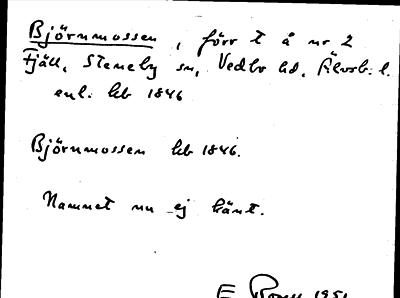 Björnmossen, förr t å nr 2
Fjäll, Steneby sn, Vedbo hd, Älvsb. l.
enl. hb 1846
Björnmossen hb 1846.
Namnet nu ej känt.
E 1951